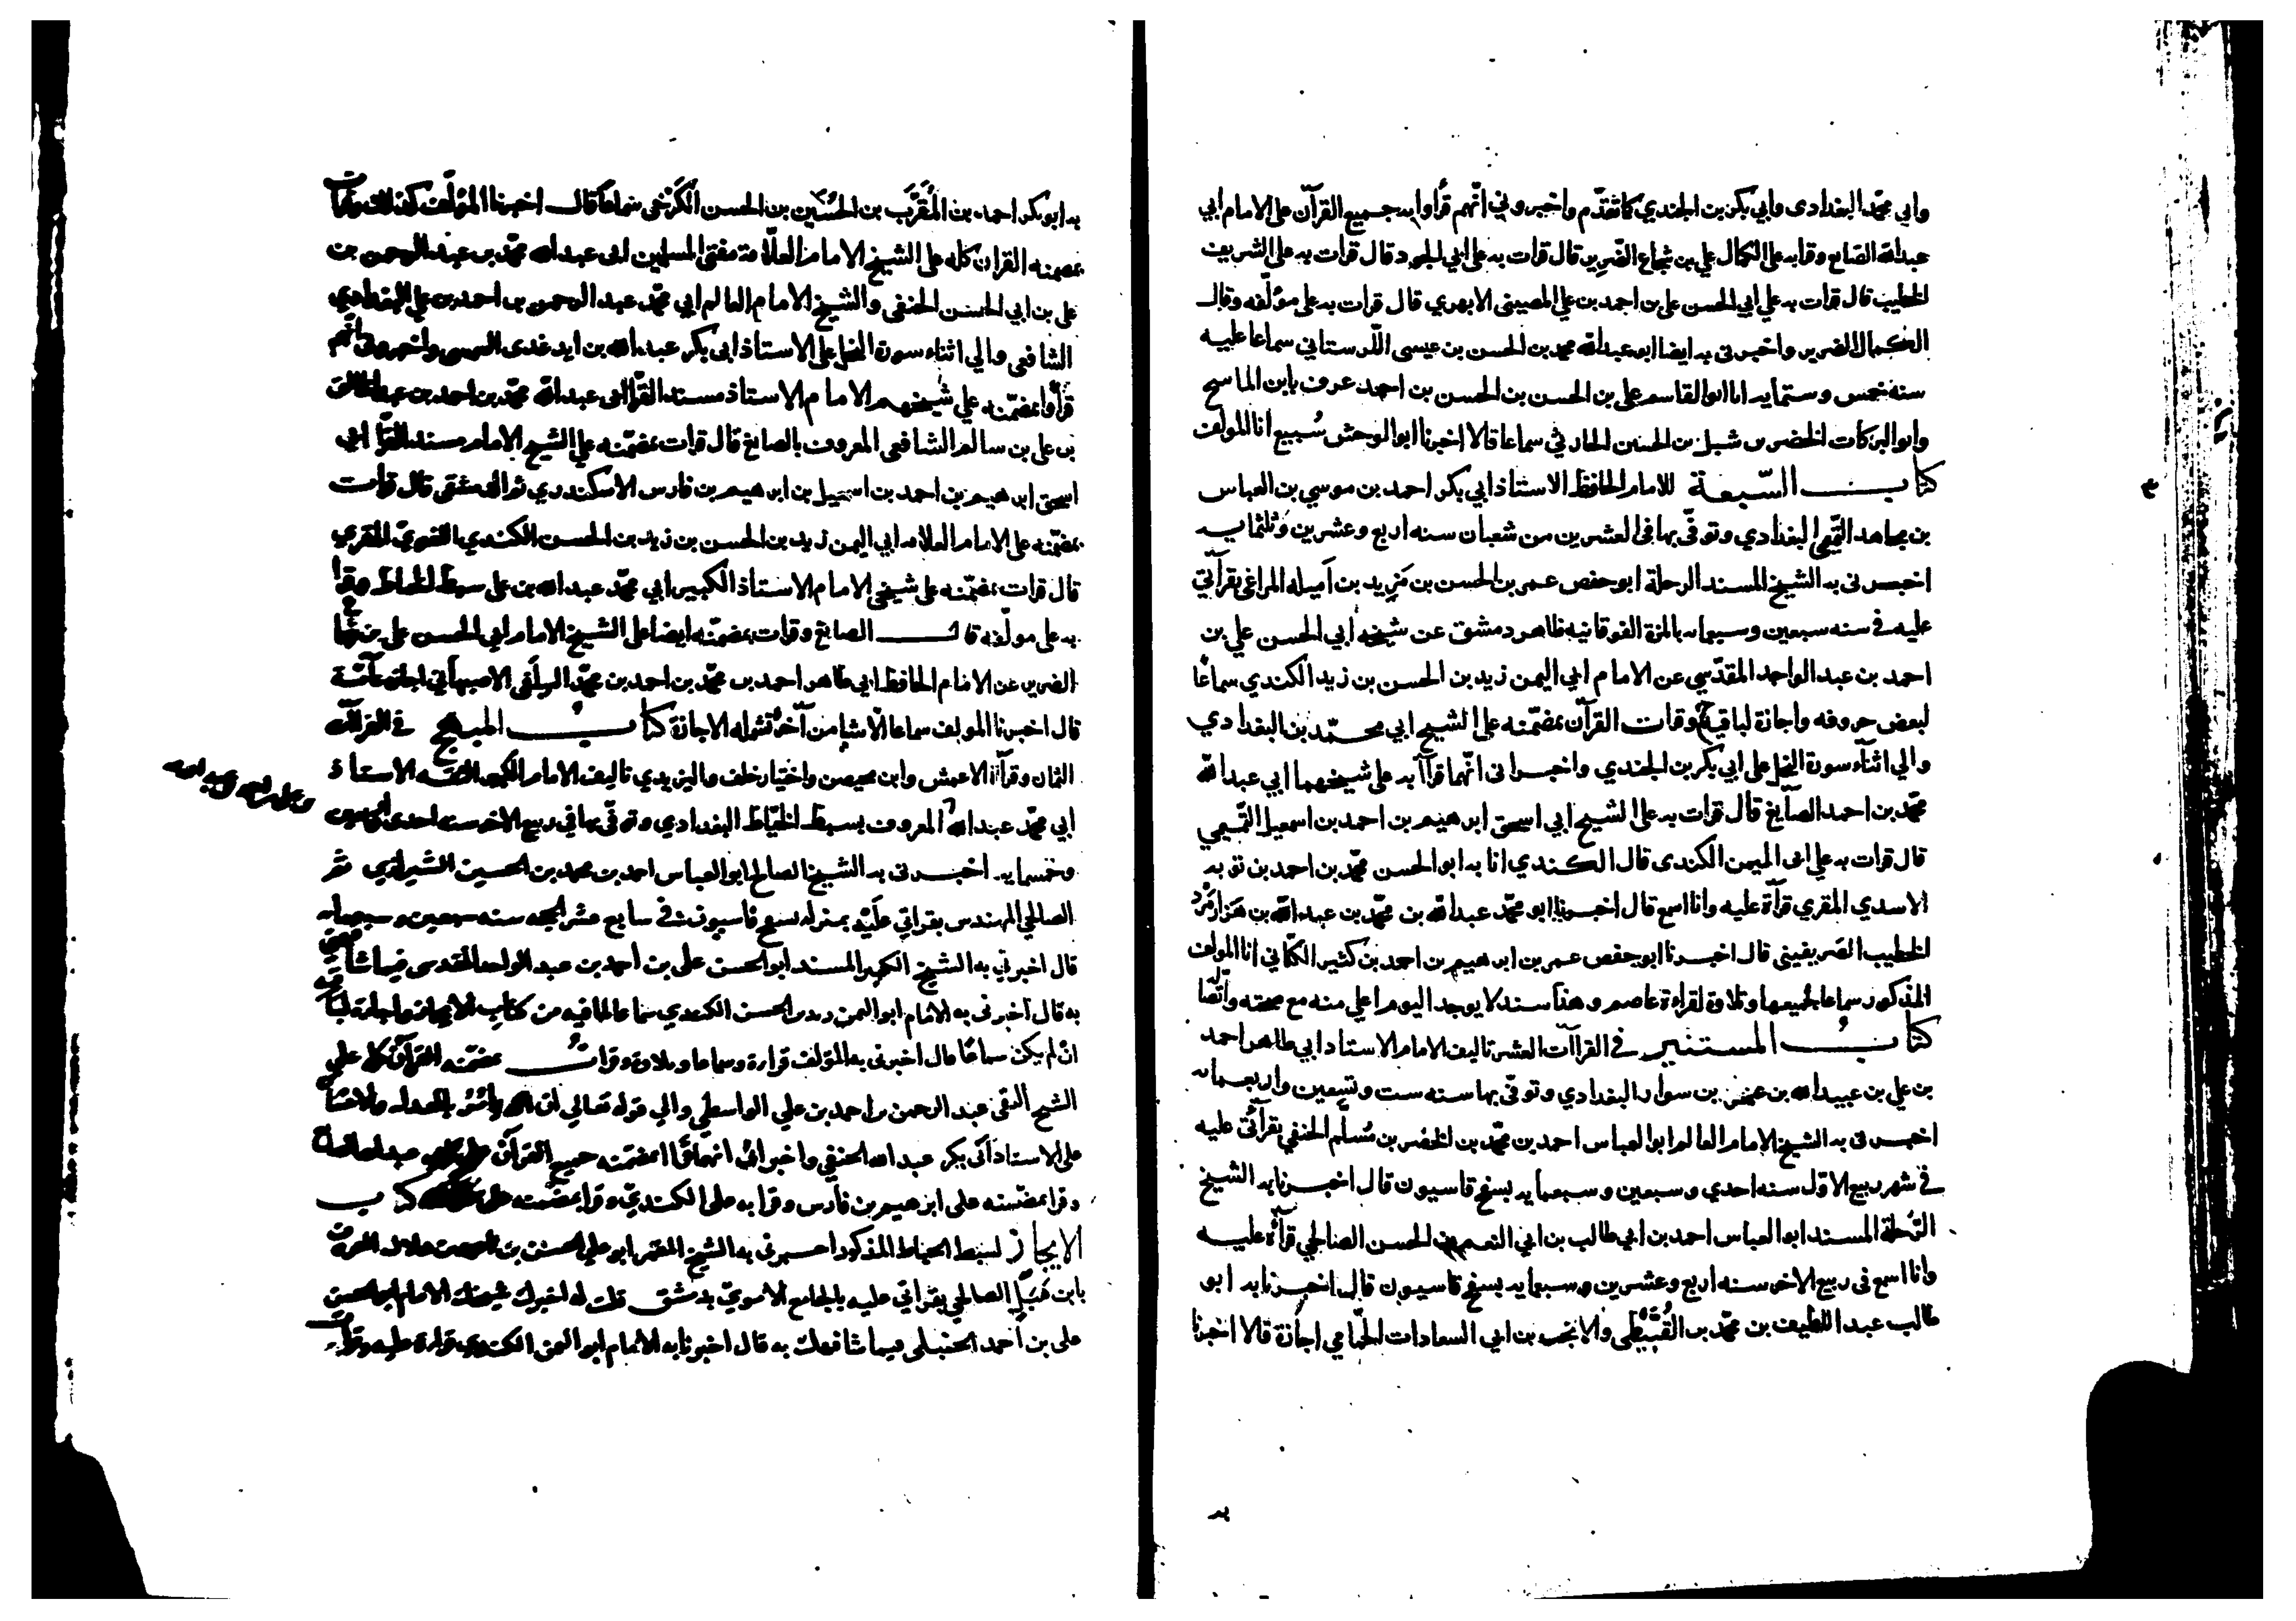 وابي محمد البغدادى وابي بكر بن الجندي كما تقدّم واخبروني انّهم قرأوا به جميع القرآن على الامام ابي
عبد الله الصايغ وقرا به على الكمال علي بن شجاع الضرير قال قرات به على ابي الجود قال قرات به على الشريف
الخطيب قال قرات به على ابي الحسن على بن احمد بن علي المصيني الابهري قال قرات به على مؤلّفه وقال
الكمال الضرير واخبرنى به ايضا ابو عبد الله محمد بن الحسن بن عيسى اللّرستاني سماعا عليه
سنه خمس وستمايه انا ابو القاسم على بن الحسن بن الحسن بن احمد عرف بابن الماسح
وابو البركات الخضر بن شبل بن الحسين الحارثي سماعا قالا اخبرنا ابو الوحش سُبيع انا المولف
كتاب السّبعة للامام الحافظ الاستاذ ابي بكر احمد بن موسي بن العباس
بن مجاهد التّميمي البغدادي وتوفّى بها فى العشرين من شعبان سنه اربع وعشرين وثلثمايه
اخبرنى به الشيخ المسند الرحلة ابو حفص عمر بن الحسن بن مَزيد بن اَميله المراغى بقرآتي
عليه في سنه سبعين وسبعمايه بالمزة الفوقانيه ظاهر دمشق عن شيخه ابي الحسن علي بن
احمد بن عبد الواحد المقدّسي عن الامام ابي اليمن زيد بن الحسن بن زيد الكندي سماعًا
لبعض حروفه واجازة لباقيه ح وقرات القرآن بمضمّنه على الشيخ ابي محمّد بن البغدادي
والي اثناء سورة النحل على ابي بكر بن الجندي واخبرانى انّهما قرآ به على شيخهما ابي عبد الله
محمّد بن احمد الصّايغ قال قرات به على الشيخ ابي اسحق ابرهيم بن احمد بن اسمعيل التّميمي
قال قرات به علي ابى اليمن الكندى قال الكندي انا به ابو الحسن محمّد بن احمد بن توبه
الاسدي المقري قرآة عليه وانا اسمع قال اخبرنا ابو محمّد عبد الله بن محمّد بن عبد الله بن هَزارمَرْد
الخطيب الصّريفيني قال اخبرنا ابو حفص عمر بن ابرهيم بن احمد بن كثير الكتّاني انا المولف
المذكور سماعا لجميعها وتلاوة لقراءة عاصم وهذا سند لا يوجد اليوم اعلي منه مع صحته واتّصاله
كتابُ المستنير في القرآآت العشر تاليف الامام الاستاد ابي طاهر احمد
بن علي بن عبيد الله بن عمر بن سوار البغدادي وتوفّى بها سنه ست وتسعين واربعمايه
اخبرنى به الشيخ الامام العالم ابو العباس احمد بن محمّد بن الخضر بن مُسلّم الحنفي بقرآتي عليه
في شهر ربيع الاوّل سنه احدي وسبعين وسبعمايه بسفح قاسيون قال اخبرنا به الشيخ
الرّحلة المسند ابو العباس احمد بن ابي طالب بن ابي النعم بن الحسن الصالحي قرآة عليه
وانا اسمع فى ربيع الاخر سنه اربع وعشرين وسبعمايه بسفح قاسيون قال اخبرنا به ابو
طالب عبد اللطيف بن محمّد بن القُبَّيْطي والانجب بن ابي السعادات الحمّامي اجازة قالا اخبرنا
به
به ابو بكر احمد بن المُقَرَّب بن الحُسَين بن الحسن الكَرْخى سماعا قال اخبرنا المؤلّف كذلك وقرات
بمضمنه القران كله على الشيخ الامام العلّامة مفتى المسلمين ابى عبد الله محمّد بن عبد الرحمن بن
على بن ابي الحسن الحنفى والشيخ الامام العالم ابي محمّد عبد الرحمن بن احمد بن علي البغدادي
الشافعى والي اثناء سورة النحل على الاستاذ ابى بكر عبد الله بن ايدغدى الشمسى واخبرونى انّهم
قرأوا بمضمّنه علي شيخهم الامام الاستاذ مسند القرّا ابى عبد الله محمّد بن احمد بن عبد الخالق
بن على بن سالم الشافعى المعروف بالصايغ قال قرات بمضمّنه على الشيخ الامام مسند القرّا ابي
اسحق ابرهيم بن احمد بن اسمعيل بن ابرهيم بن فارس الاسكندري ثم الدمشقى قال قرات
بمضمّنه على الامام العلامه ابي اليمن زيد بن الحسن بن زيد بن الحسن الكندي اللغويّ المقري
قال قرات بمضمّنه على شيخى الامام الاستاذ الكبير ابي محمّد عبد الله بن على سبط الخياط وقرا
به على مولّفه قال الصايغ وقرات بمضمّنه ايضا على الشيخ الامام ابي الحسن على بن شجاع
الضرير عن الامام الحافظ ابي طاهر احمد بن محمّد بن احمد بن محمّد السِلَفى الاصبهاني اجازة عامّة
قال اخبرنا المولف سماعا الّا شيا من آخره تشمله الاجازة كتابُ المبهج في القرآآت
الثمان وقرآة الاعمش وابن محيصن واختيار خلف واليزيدي تاليف الامام الكبير الثقه الاستاذ
ابي محمّد عبد الله المعروف بسبط الخيّاط البغدادي وتوفّى بها في ربيع الاخر سنه احدى واربعين
وخمسمايه اخبرنى به الشيخ الصالح ابو العباس احمد بن محمد بن الحسين الشيرازي ثم
الصالحي المهندس بقراتي عليْه بمنزله بسفح قاسيون في سابع عشر الحجه سنه سبعين وسبعمايه
قال اخبرني به الشيخ الكبير المسند ابو الحسن على بن أحمد بن عبد الواحد المقدسى فيما شافهنى
به قال اخبرنى به الامام ابو اليمن زيد بن الحسن الكندي سماعا لما فيه من كتاب الايجاز واجازة لباقيه
ان لم يكن سماعًا قال اخبرنى به المؤلف قراءة وسماعا وتلاوة وقراتُ بمضمّنه القرآن كله على
الشيخ التقى عبد الرحمن بن احمد بن علي الواسطي والي قوله تعالي ان الله يامُرُ بالعدل والاحسان
على الاستاد ابى بكر عبد الله الحنفي واخبرانى انهما قرآ بمضمّنه جميع القرآن
وقرا بمضمّنه على ابرهيم بن فارس وقرا به على الكنديّ وقرا بمضمّنه على مولفه كتاب
الايجاز لسبط الخياط المذكور اخبرنى به الشيخ المعّمر ابو علي الحسن بن احمد بن هلال المعروف
بابن هَبَلٍ الصالحي بقراتي عليه بالجامع الامويّ بدمشق قلت له اخبرك شيخك الامام ابو الحسن
على بن أحمد الحنبلى فيما شافهك به قال اخبرنا به الامام ابو اليمن الكندي قراءة عليه وقرات